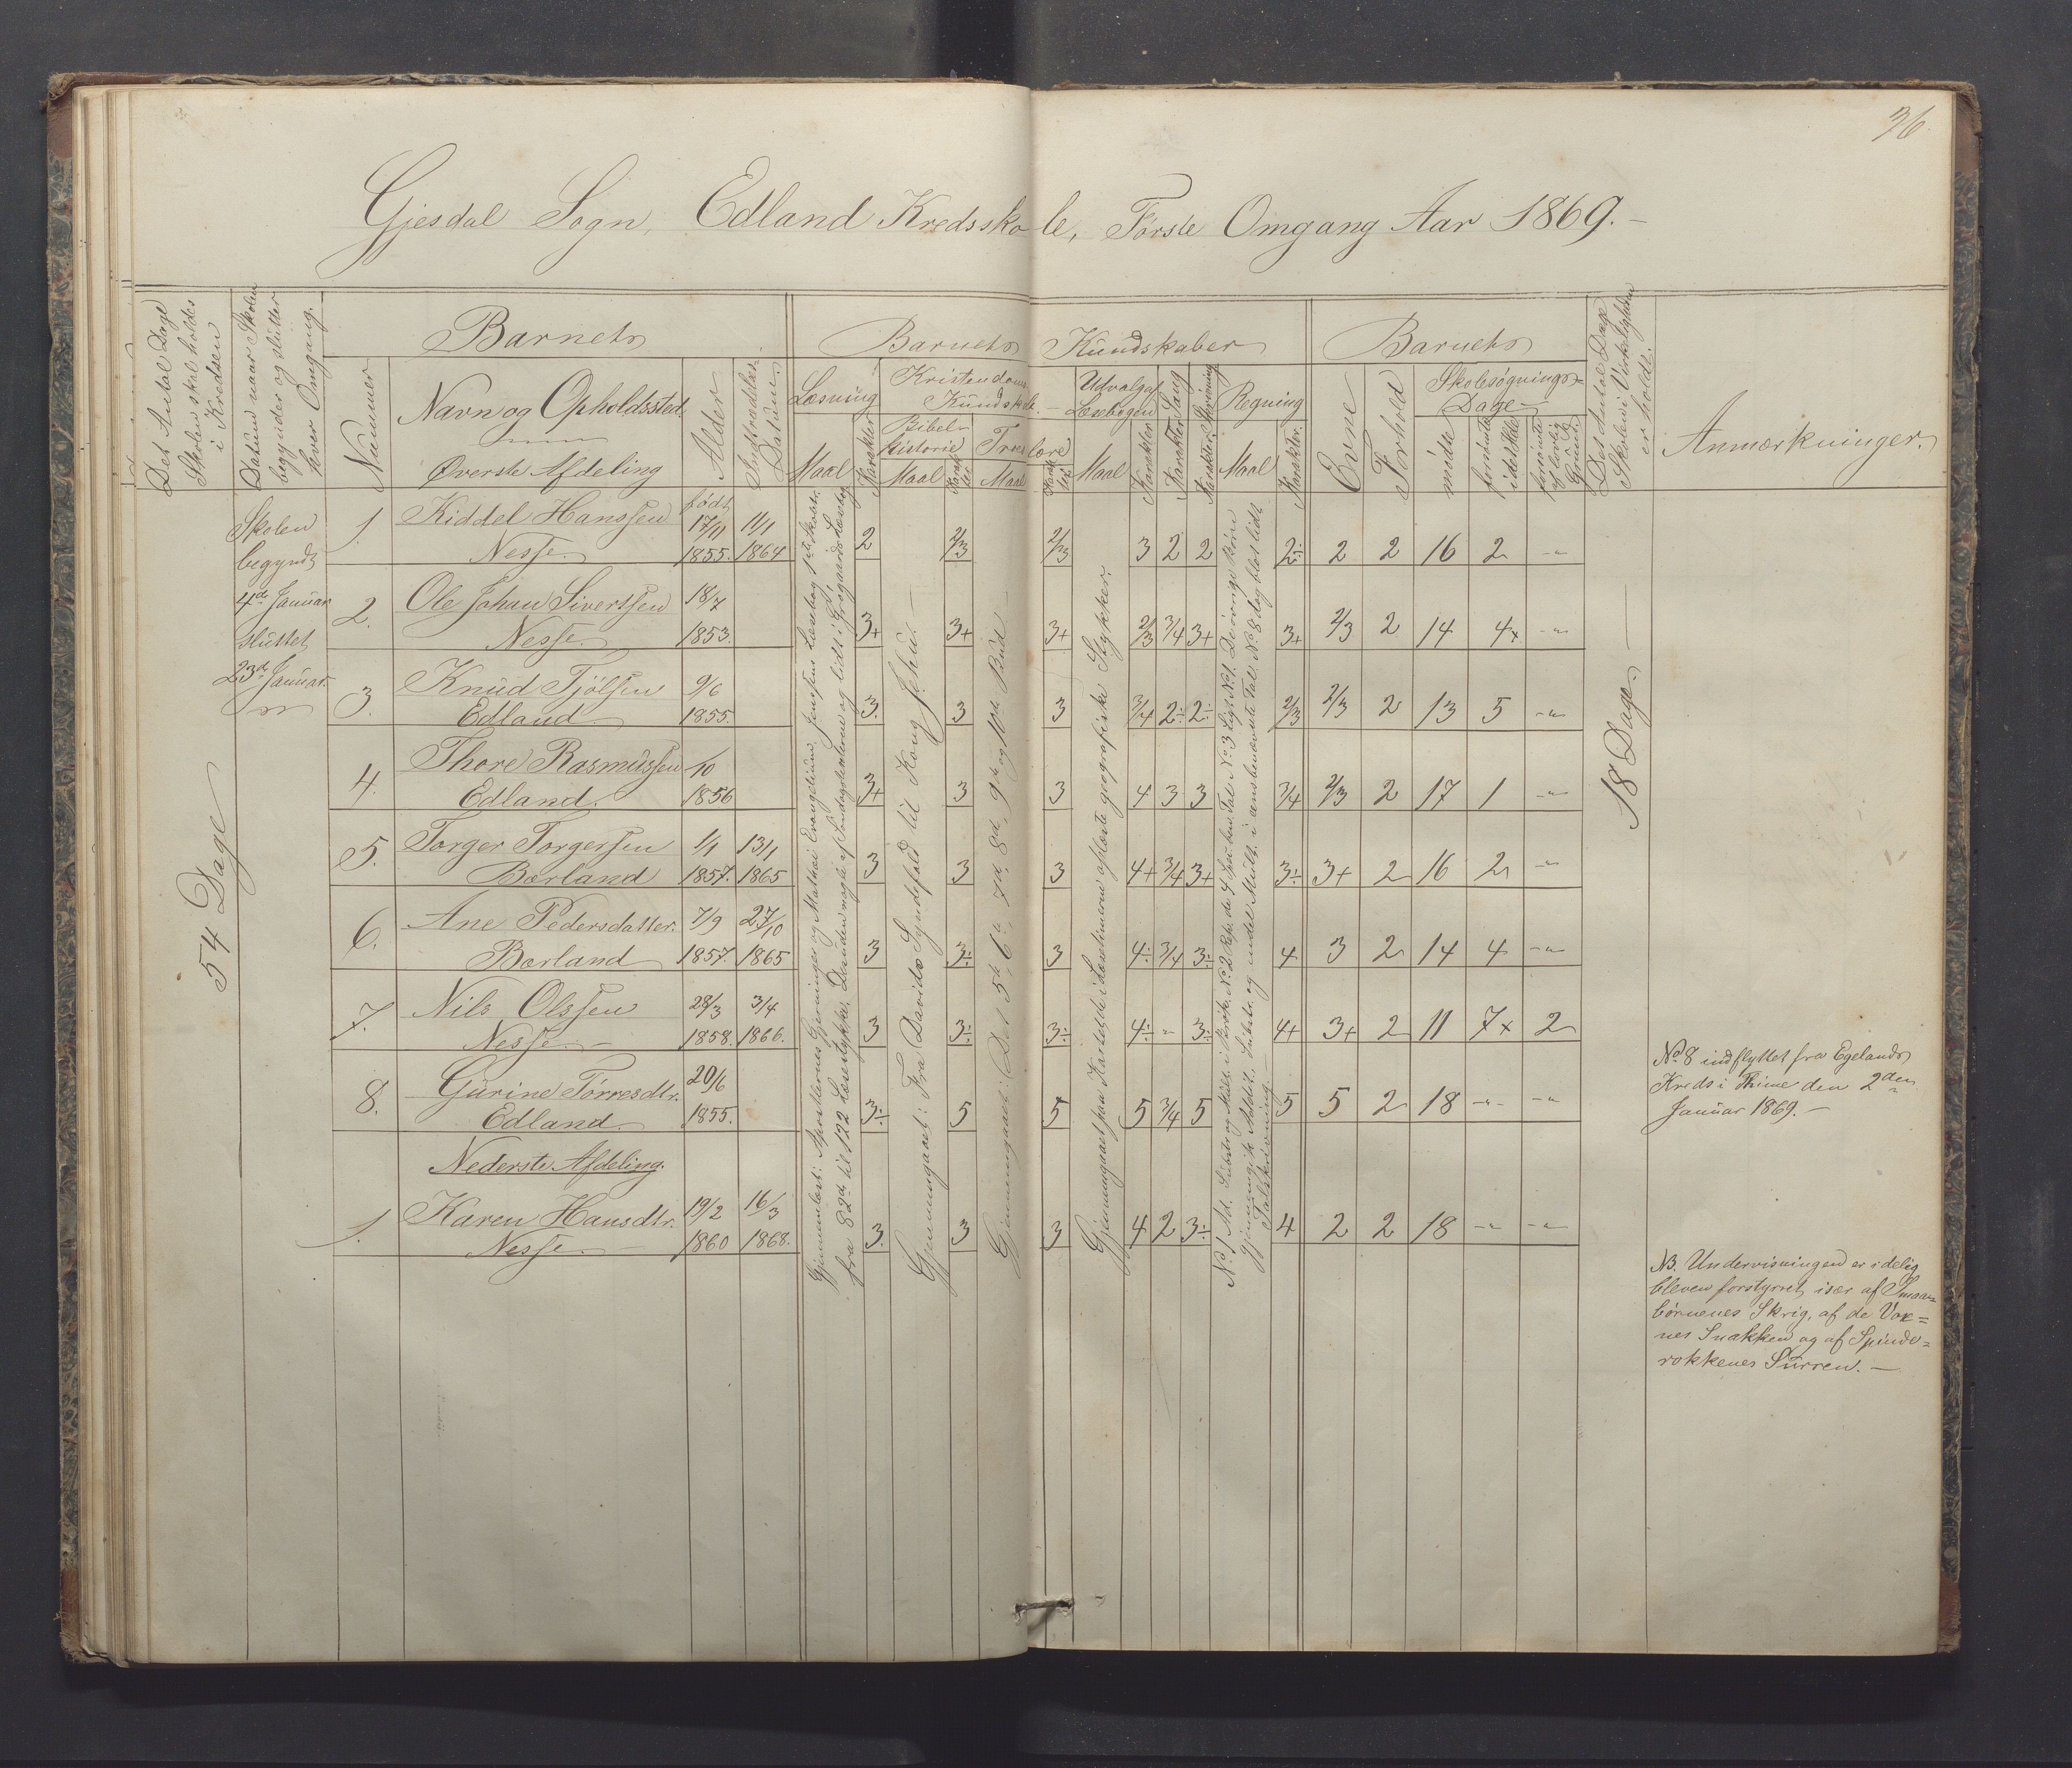 36
Gjesdal Sogn, Edland Kredsskole, Første Omgang Aar 1869.-
Det Antal Dage
Skolen skal holdes
i Kredsen
Datum naar Skolen
begynder og slutter
hver Omgang.
Nummer
Barnets
Navn og Opholdssted.
Øverste Afdeling
Alder
Indtrædelses-
Datum.
Barnets Kundskaber
Læsning
Maal
Karakter
Kristendoms-
Kundskab.
Bibel-
historie
Maal
Karakter
Troeslære
Maal
Karakter
Udvalg af
Læsebogen
Maal
Karakter
Karakter Sang
Karakter Skrivning
Regning
Maal
Karakter.
Barnets
Evne
Forhold
Skolesøgnings-
Dage
mødte
forsømte
i det Hele
forsømte
af lovlig
Grund.
Det Antal Dage
Skolen i Virkeligheden
er holdt.
Anmærkninger.
54 Dage
Skolen
begyndt
4de Januar
sluttet
23de Januar.
18 Dage.
1. Kiddel Hanssen født 17/11 11/1 2 2/3 2/3 3 2 2 2÷ 2 2 16 2 -"-
Nesse. 1855. 1864
2. Ole Johan Sivertsen 18/7 3+ 3+ 3+ 2/3 3/4 3+ 3+ 2/3 2 14 4x -"-
Nesse. 1853.
3. Knud Tjölsen 9/6 3. 3 3 3/4 2÷ 2÷ 2/3 2/3 2 13 5 -"-
Edland 1855.
4. Thore Rasmussen /10 3+ 3 3 4 3 3 3/4 2/3 2 17 1 -"-
Edland. 1856
5. Torger Torgersen 1/1 13/1 3 3 3 4+ 3/4 3+ 3÷ 3+ 2 16 2 -"-
Bærland 1857. 1865
6. Ane Pedersdatter. 7/9 27/10 3 3÷ 3 4÷ 3/4 3÷ 4 3 2 14 4 -"-
Bærland 1857. 1865
7. Nils Olssen 28/3 3/4 3 3÷ 3÷ 4÷ -"- 3÷ 4+ 3+ 2 11 7x 2
Nesse. 1858. 1866.
8. Gurine Tørresdtr. 20/6 3÷ 5 5 5 3/4 5 5 5 2 18 -"- -"-
Edland. 1855.
Nederste Afdeling.
1. Karen Hansdtr. 19/2 16/3 3. 3 3 4 2 3÷ 4 2 2 18 -"- -"-
Nesse. 1860 1868.
Gjennemlæst: Apostlernes Gjerninger og Mathæi Evangelium. Jensens Læsebog 1ste Skoletr.
fra 82de til 122 Læsestykke. Desuden nogle af Søndagstexterne og lidt i Grøgaards Læsebog
Gjennemgaaet: Fra Davids Syndefald til Kong Jehu.
Gjennemgaaet: Det 5te, 6te, 7de, 8de, 9de og 10de Bud.
Gjennemgaaet paa Kartet de i Læsetimerne oplæste geografiske Stykker.
Talskrivning.
No 8 indflyttet fra Egelands
Kreds i Thime den 2den
Januar 1869.-
NB. Undervisningen er idelig
bleven forstyrret især af Smaa=
børnenes Skrig, af de Vox=
nes Snakken og af Spinde=
rokkenes Surren.-